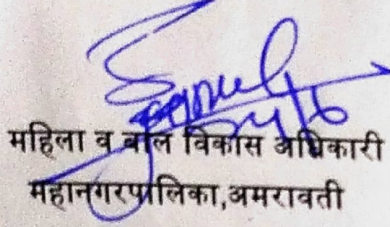 महिला व बाल विकास अधिकारी
महानगरपालिका,अमरावती